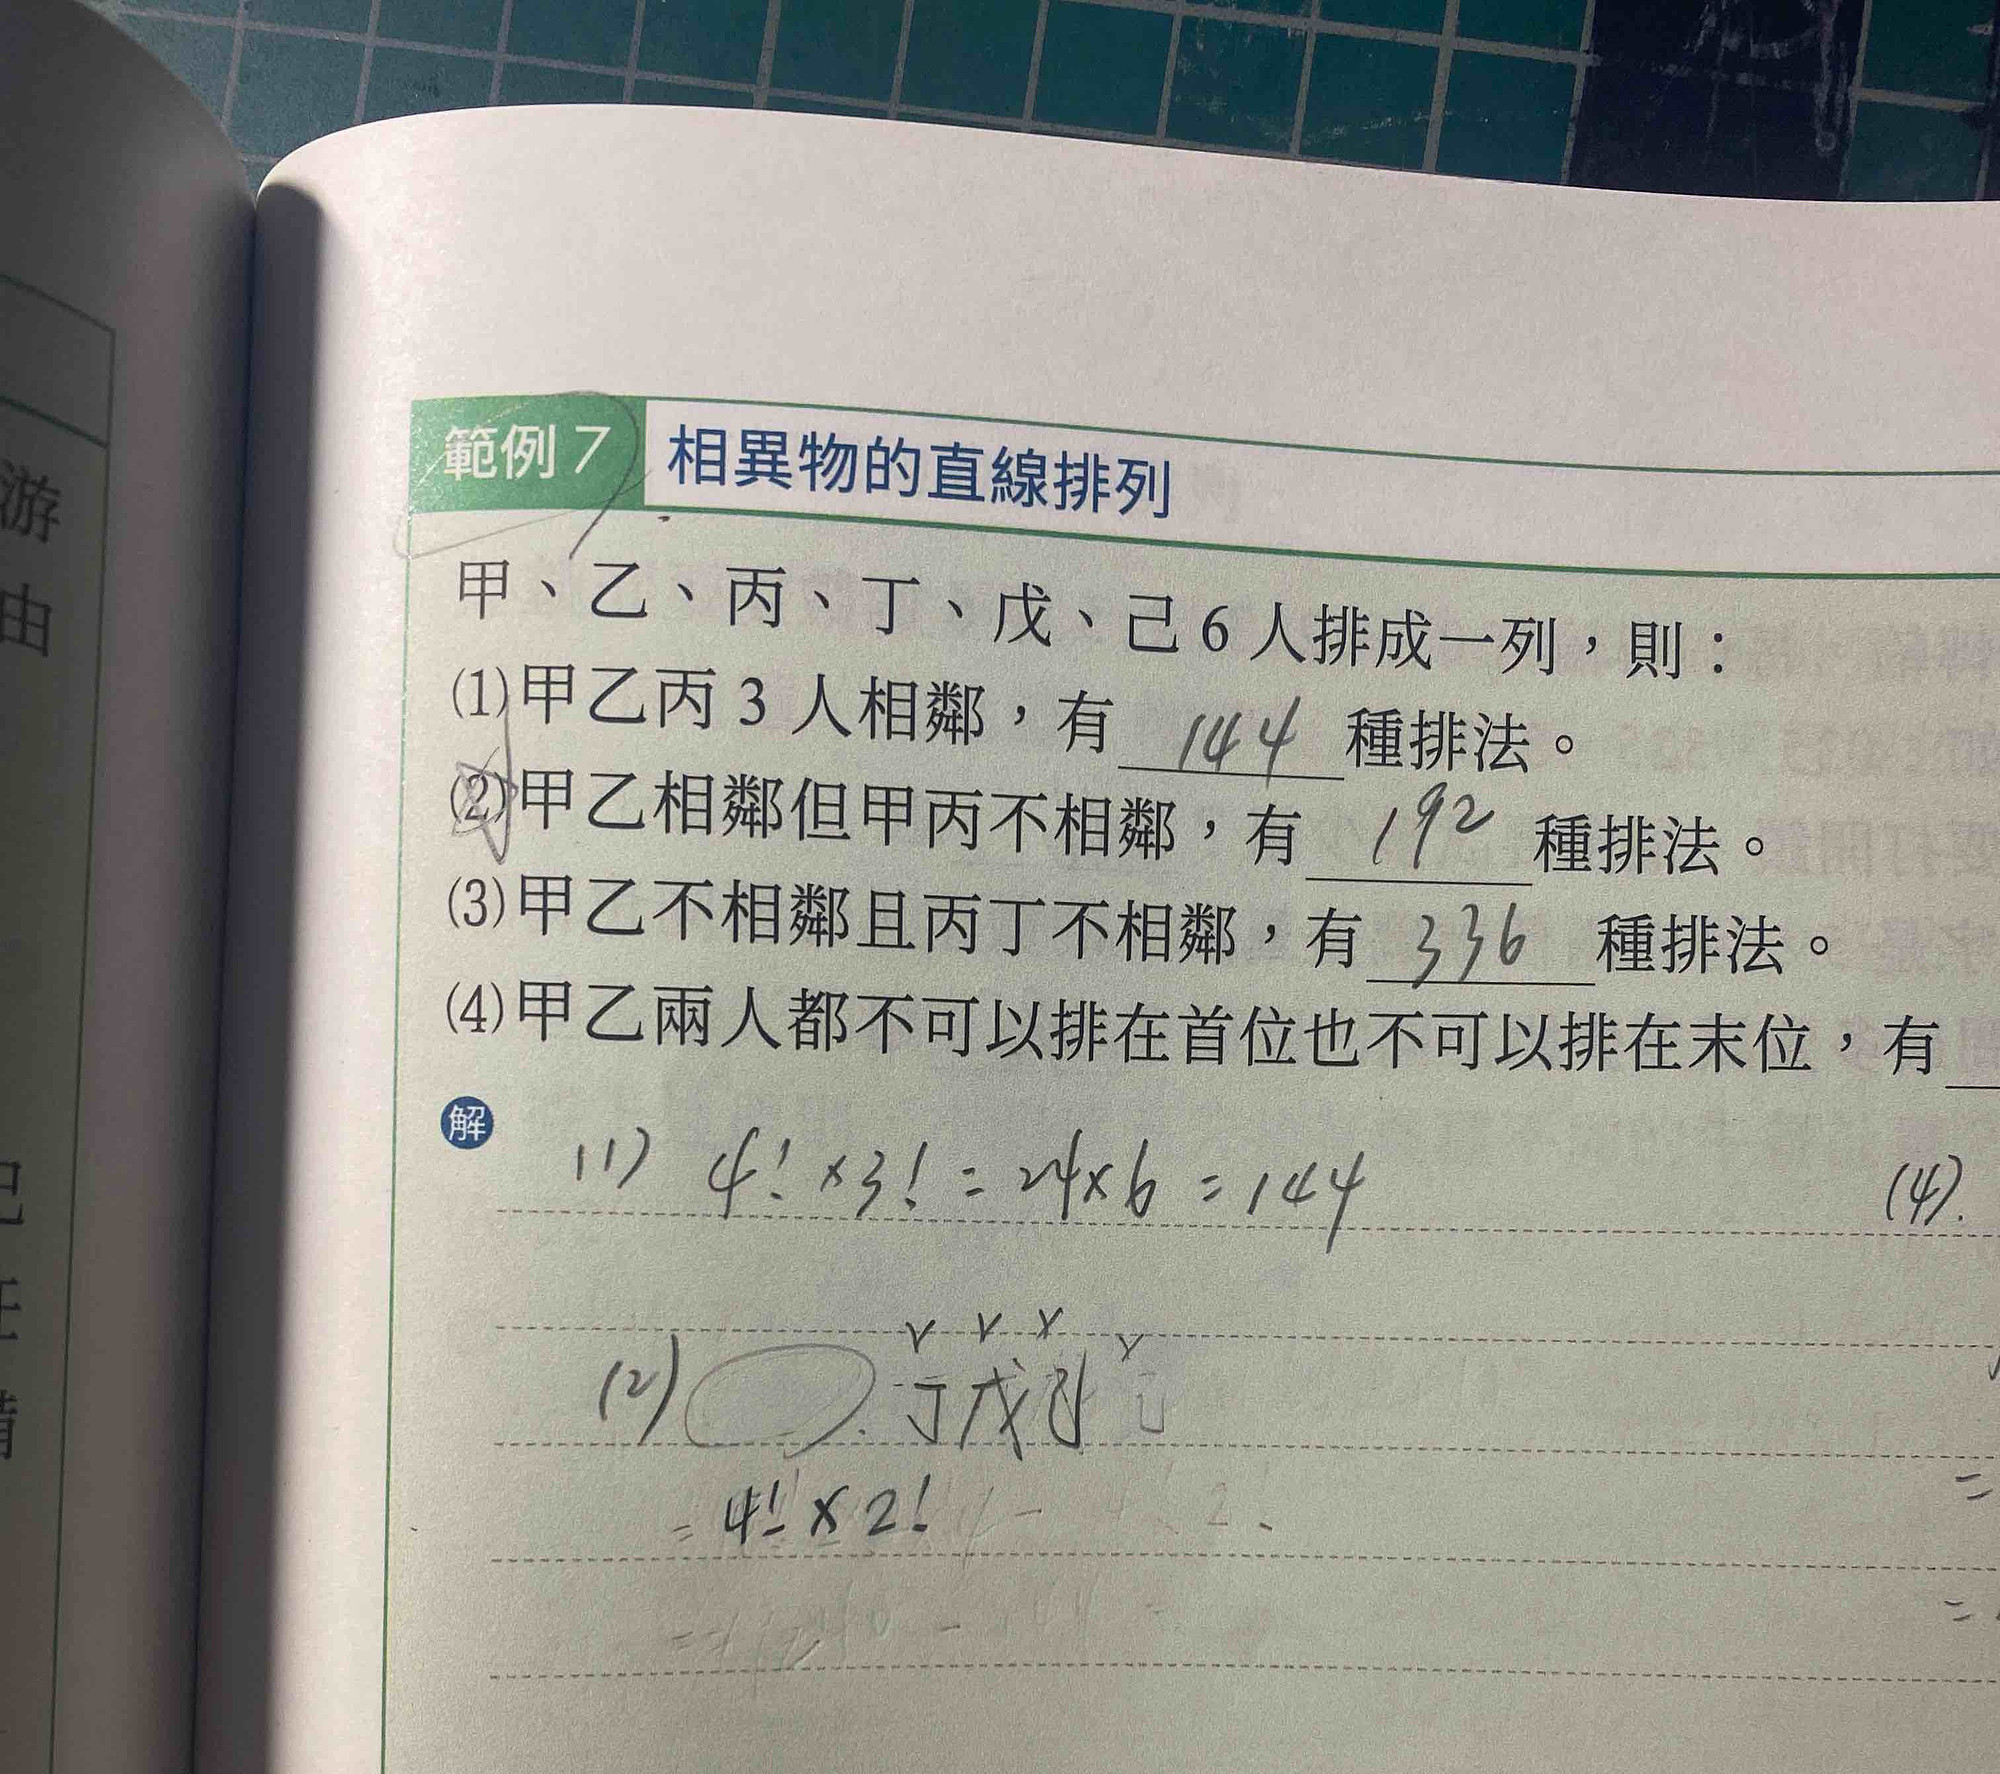 游
由
範例7 相異物的直線排列
甲、乙、丙、丁、戊、己6人排成一列，則：
(1)甲乙丙3人相鄰，有 144 種排法。
(2)甲乙相鄰但甲丙不相鄰，有 192 種排法。
(3)甲乙不相鄰且丙丁不相鄰，有 336 種排法。
(4)甲乙兩人都不可以排在首位也不可以排在末位，有
解
(1) 4! × 3! = 24 × 6 = 144
(4).
(2) 丁戊
= 4! × 2!
=
=